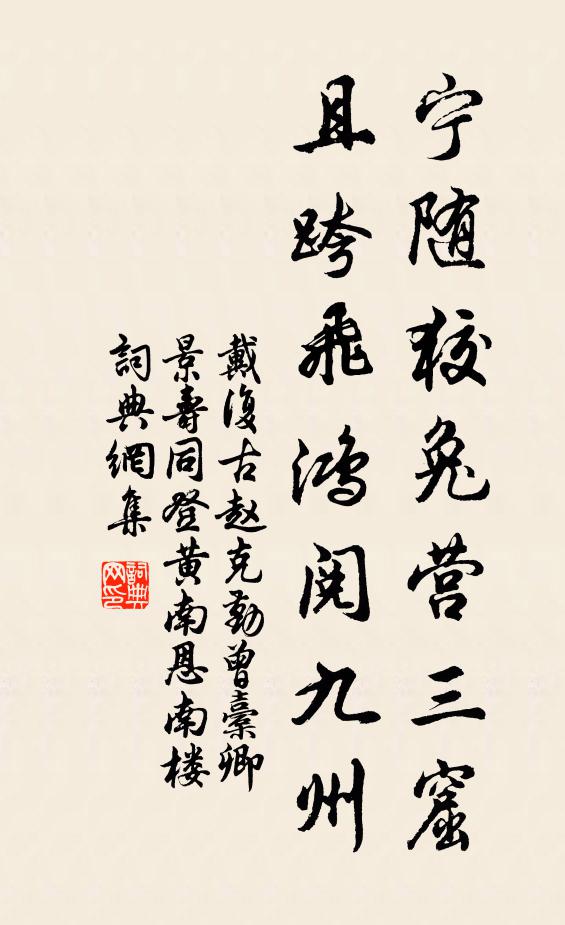 宁随狡兔营三窟
且跨飞鸿阅九州
戴復古赵克勤曾橐卿
景壽同登黄南恩南楼
詞典網集
詞典网印